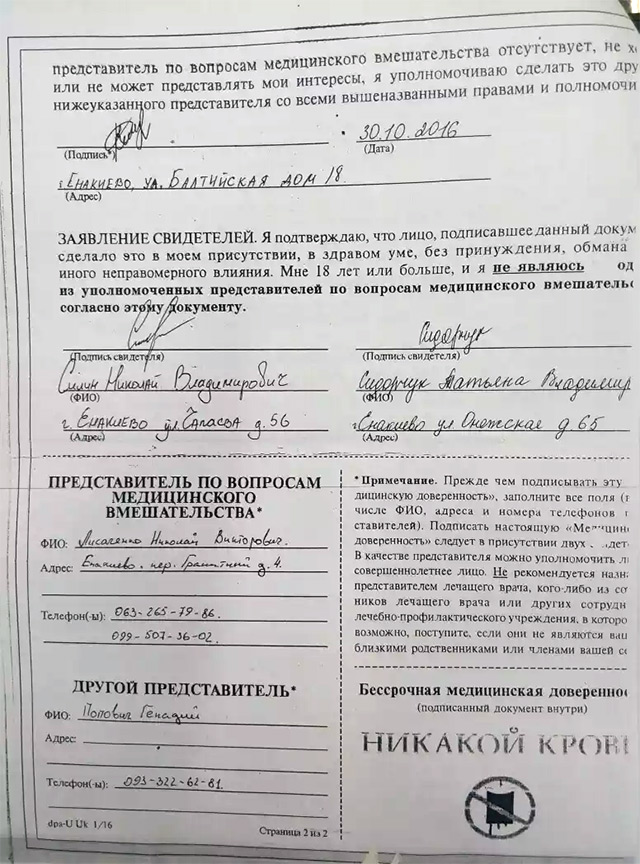 представитель по вопросам медицинского вмешательства отсутствует, не хо
или не может представлять мои интересы, я уполномочиваю сделать это дру
нижеуказанного представителя со всеми вышеназванными правами и полномочи
30.10.2016
(Подпись*)
(Дата)
г. Енакиево, ул. Балтийская дом 18
(Адрес)
ЗАЯВЛЕНИЕ СВИДЕТЕЛЕЙ. Я подтверждаю, что лицо, подписавшее данный докум
сделало это в моем присутствии, в здравом уме, без принуждения, обмана
иного неправомерного влияния. Мне 18 лет или больше, и я не являюсь од
из уполномоченных представителей по вопросам медицинского вмешательс
согласно этому документу.
(Подпись свидетеля)
Силин Николай Владимирович
(ФИО)
г. Енакиево ул Чапаева д. 56
(Адрес)
Сидорчук
(Подпись свидетеля)
Сидорчук Татьяна Владимир
(ФИО)
г Енакиево ул Онежская д 65
(Адрес)
ПРЕДСТАВИТЕЛЬ ПО ВОПРОСАМ
МЕДИЦИНСКОГО
ВМЕШАТЕЛЬСТВА*
ФИО: Николай Викторович.
Адрес: Енакиево. пер. Гранитный д. 4.
Телефон(-ы): 063-265-79-86.
099-507-36-02.
ДРУГОЙ ПРЕДСТАВИТЕЛЬ*
ФИО: Попович Генадий
Адрес:
Телефон(-ы): 093-322-62-81
dpa-U Uk 1/16
Страница 2 из 2
*Примечание. Прежде чем подписывать эту
дицинскую доверенность», заполните все поля (т
числе ФИО, адреса и номера телефонов п
ставителей). Подписать настоящую «Медицинс
доверенность» следует в присутствии двух
В качестве представителя можно уполномочить л
совершеннолетнее лицо. Не рекомендуется назна
представителем лечащего врача, кого-либо из со
ников лечащего врача или других сотрудн
лечебно-профилактического учреждения, в которо
возможно, поступите, если они не являются ваш
близкими родственниками или членами вашей се
Бессрочная медицинская доверенно
(подписанный документ внутри)
НИКАКОЙ КРОВИ